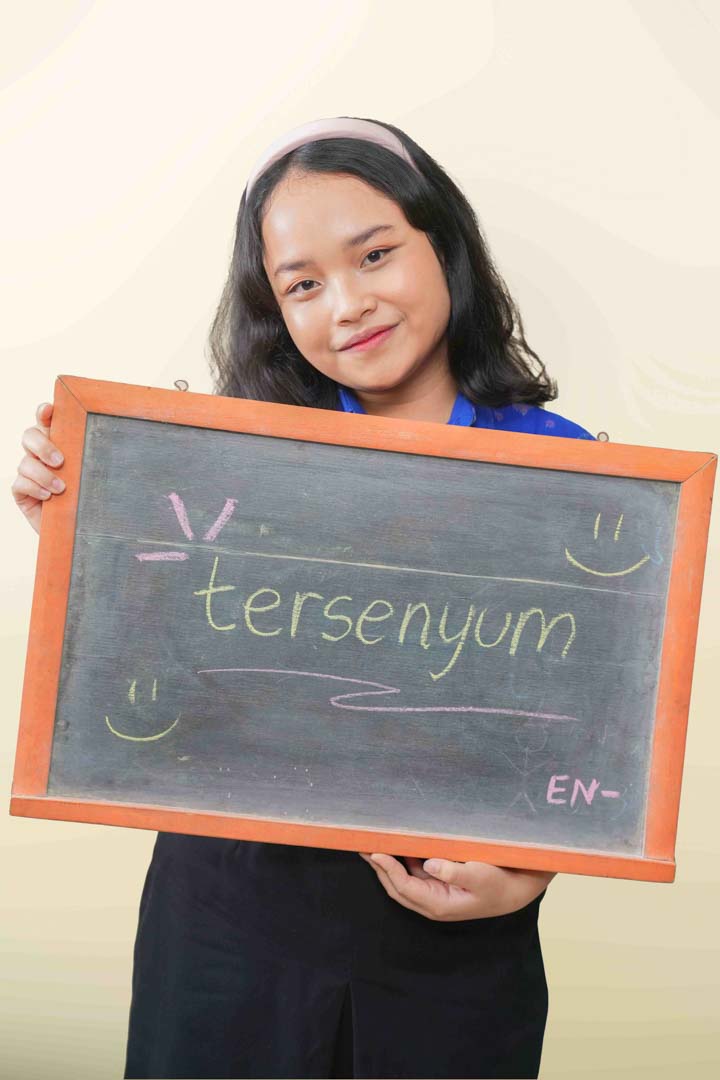 tersenyum
EN-